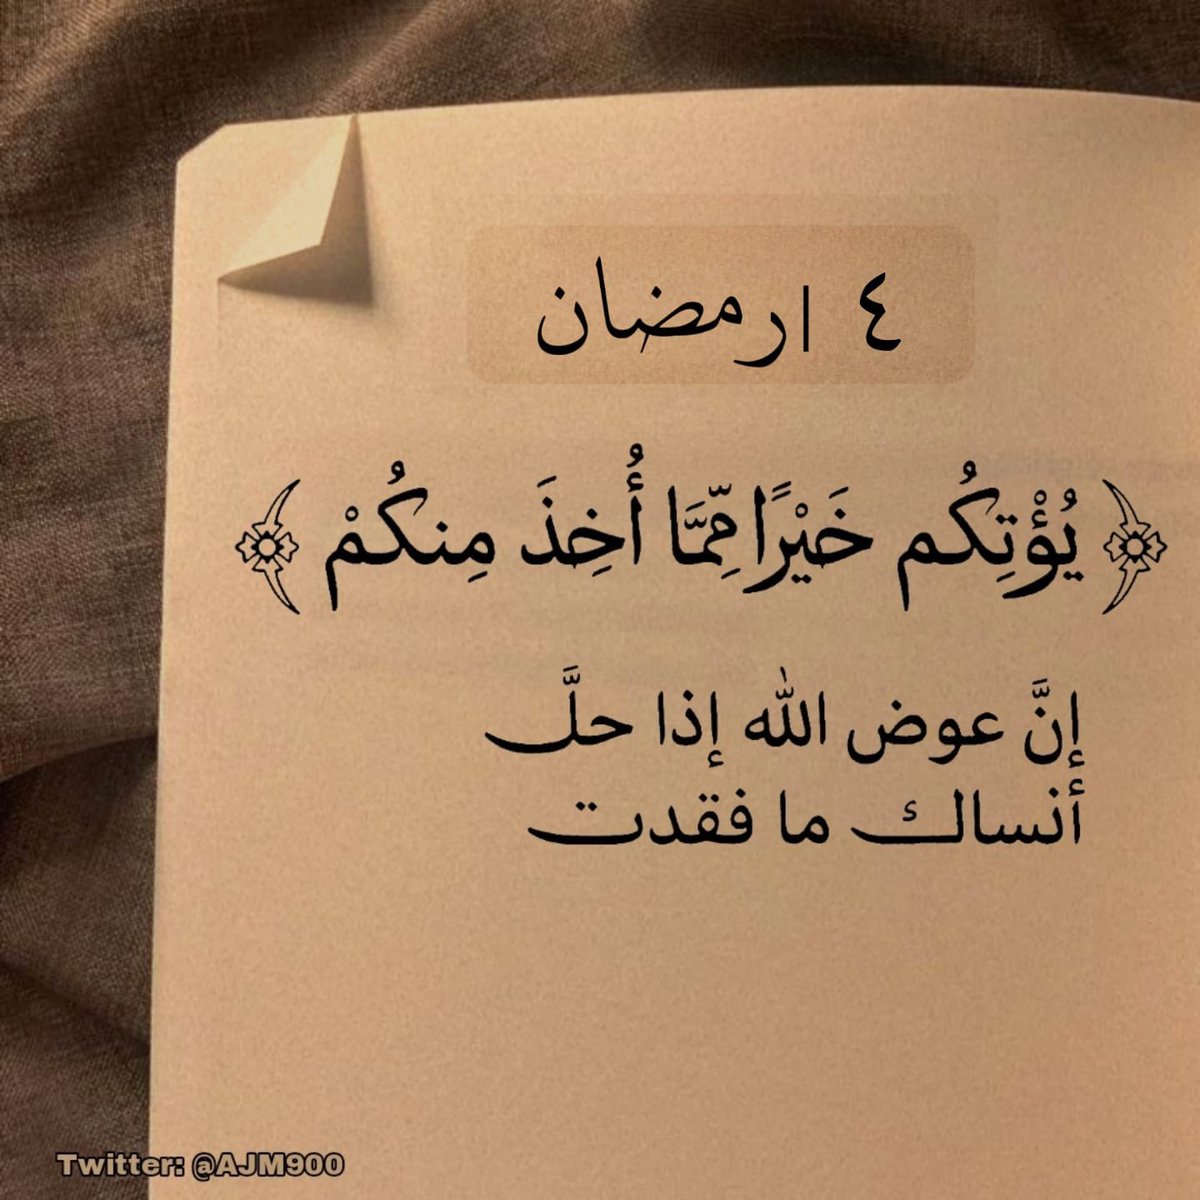 ٤ ارمضان
﴿ يُؤْتِكُم خَيْرًا مِّمَّا أُخِذَ مِنكُمْ ﴾
إنَّ عوض الله إذا حلَّ
أنساك ما فقدت
Twitter: @AJM900